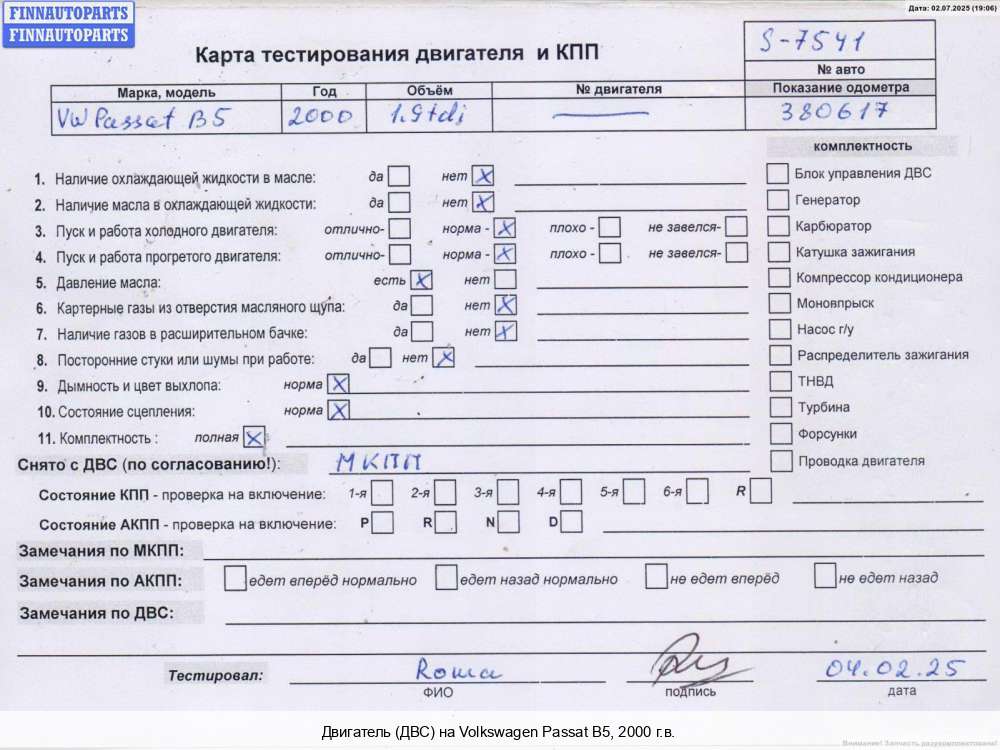 FINNAUTOPARTS
FINNAUTOPARTS
Дата: 02.07.2025 (19:06)
Карта тестирования двигателя и КПП
S-7541
№ авто
Марка, модель Год Объём № двигателя Показание одометра
VW Passat B5 2000 1.9tdi — 380617
комплектность
1. Наличие охлаждающей жидкости в масле: да нет X
2. Наличие масла в охлаждающей жидкости: да нет X
3. Пуск и работа холодного двигателя: отлично- норма - X плохо - не завелся-
4. Пуск и работа прогретого двигателя: отлично- норма - X плохо - не завелся-
5. Давление масла: есть X нет
6. Картерные газы из отверстия масляного щупа: да нет X
7. Наличие газов в расширительном бачке: да нет X
8. Посторонние стуки или шумы при работе: да нет X
9. Дымность и цвет выхлопа: норма X
10. Состояние сцепления: норма X
11. Комплектность : полная X
Блок управления ДВС
Генератор
Карбюратор
Катушка зажигания
Компрессор кондиционера
Моновпрыск
Насос г/у
Распределитель зажигания
ТНВД
Турбина
Форсунки
Проводка двигателя
Снято с ДВС (по согласованию!): МКПП
Состояние КПП - проверка на включение: 1-я 2-я 3-я 4-я 5-я 6-я R
Состояние АКПП - проверка на включение: P R N D
Замечания по МКПП:
Замечания по АКПП: едет вперёд нормально едет назад нормально не едет вперёд не едет назад
Замечания по ДВС:
Тестировал: Roma 04.02.25
ФИО подпись дата
Двигатель (ДВС) на Volkswagen Passat B5, 2000 г.в.
Внимание! Запчасть разукомплектована!